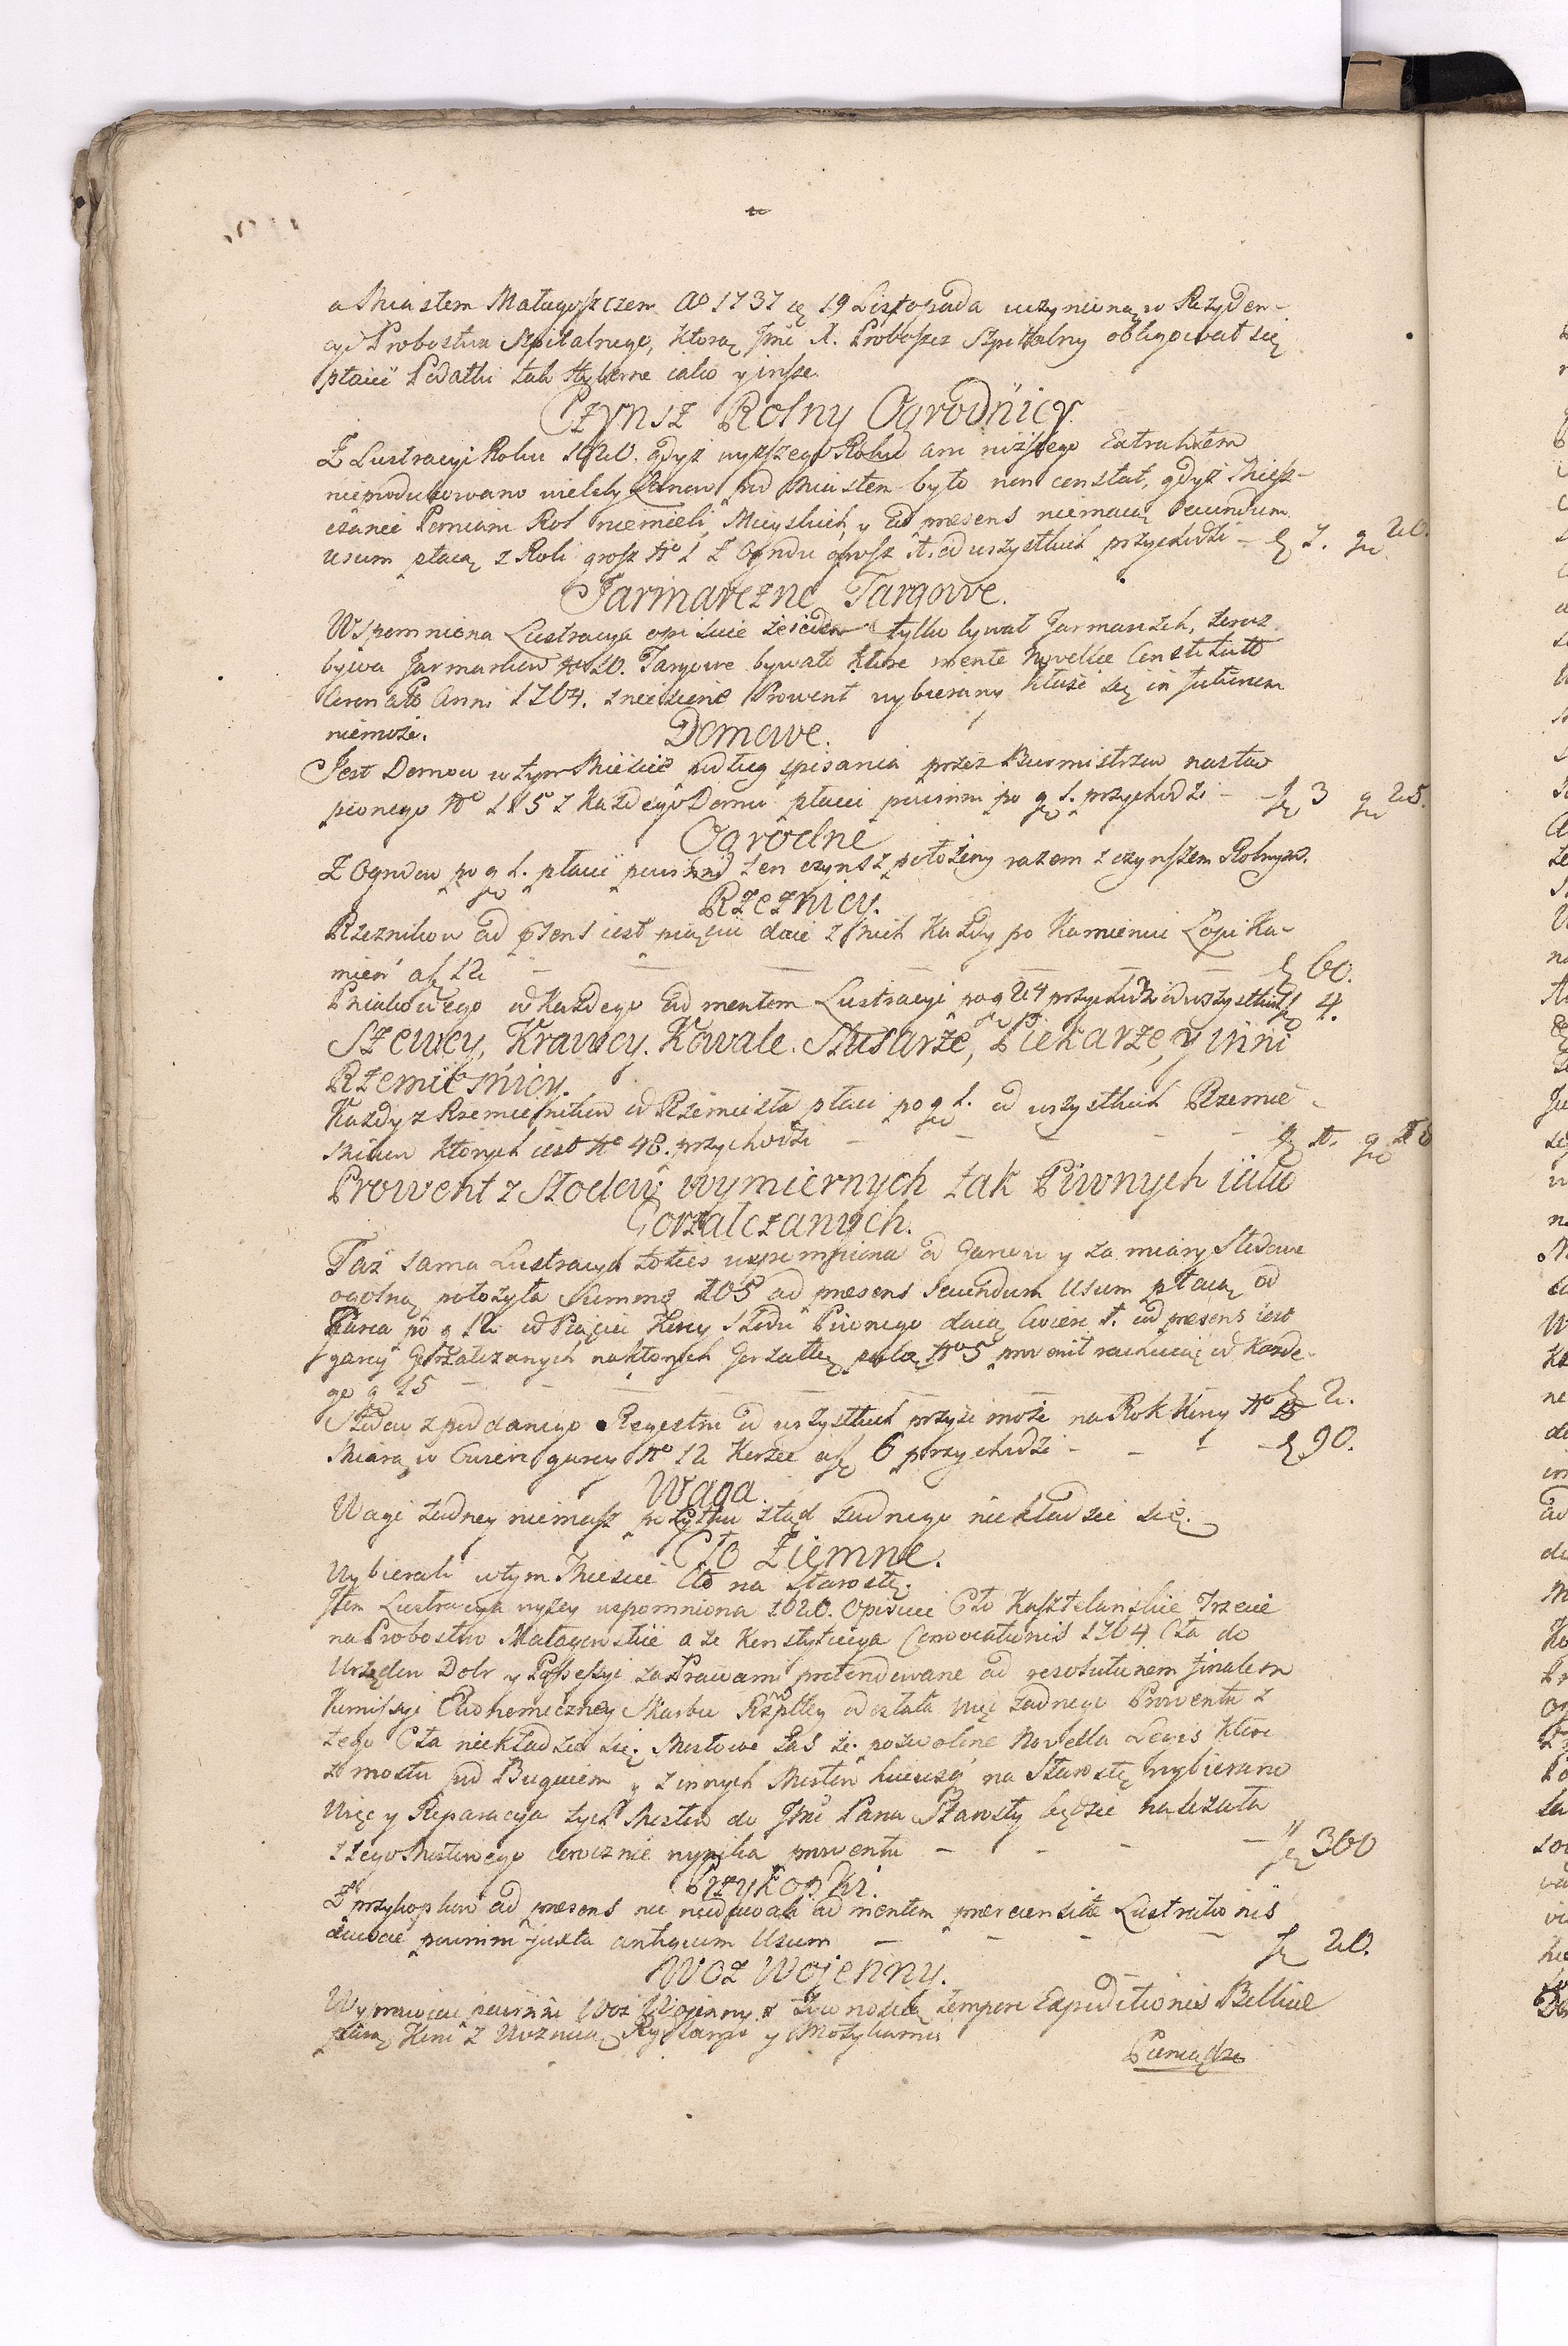 a Miastem Małagoszczem Ao 1737 19 Listopada uczynioną w Rezyden-
cyi Probostwa Szpitalnego, ktorą Jmć X. Proboszcz Szpitalny obligował się
płacić Podatki tak Hyberne iako y insze.
Czynsz Rolny Ogrodnicy.
Z Lustracyi Roku 1620. gdyż wyższego Roku ani niższego Extraktem
nieprodukowano wieleby Łanow pod Miastem było non constat, gdyż Miesz-
czanie Pomiaru Rol niemieli Mieyskich, y ad præsens niemaią Secundum
Usum płacą z Roli grosz No 1 z Ogrodu grosz 1. od wszystkich przychodzi - 7. gr 20.
Jarmarczne Targowe.
Wspomniona Lustracya opisuie że ieden tylko bywał Jarmark, teraz
bywa Jarmarkow No 10. Targowe bywało ktore mente Novellæ Constitutio
Coronato Anni 1764. zniesione Prowent wybierany kłaść się in futurum
niemoże.
Domowe.
Jest Domow w tym Mieście podług spisania przez Burmistrzow nastąp
pionego No 115 z Każdego Domu płacić powinni po g 1. przychodzi - 3 gr 25.
Ogrodne
Z Ogrodow po g 1. płacić powinni ten czynsz położony razem z czynszem Rolnym.
Rzeznicy.
Rzeznikow ad præsens iest pięciu daie z nich Każdy po Kamieniu Łoiu Ka-
mień a 12 - - - - - 60.
Pniakowego od Każdego ad mentem Lustracyi po g 24 przychodzi od wszystkich 4.
Szewcy, Krawcy. Kowale. Slusarze, Piekarze, y inni
Rzemieśnicy.
Każdy z Rzemieśnikow od Rzemiesła płaci po g 1. od wszystkich Rzemie-
snikow ktorych iest No 48. przychodzi - - - - 1. gr 18
Prowent z Słodow wymiernych tak Piwnych iako
Gorzałczanych.
Taż sama Lustracya toties wspomniona od Garcow y za miary Słodowe
ogolną położyła Summę 105 ad præsens secundum Usum płacą od
Garca po g 12 od Pięciu Korcy Słodu Piwnego daią Cwierć 1. ad præsens iest
garcy Gorzałczanych na ktorych Gorzałkę palą No 5 prowenit rachuiąc od Każde-
go g 15 - - - - - - 2.
Słodow z poddanego Regestru od wszystkich przyść może na Rok Korcy No 15
Miarą w Cwierć garcy No 12 Korzec a 6 przychodzi - - - 90.
Waga.
Wagi żadney niemasz pożytku ztąd żadnego niekładzie się.
Cło Ziemne.
Wybierali w tym Mieście Cło na Starostę.
Item Lustracya wyżey wspomniona 1620. Opisuie Cło Kasztelanskie Trzecie
na Probostwo Małagowskie a że Konstytucya Convocationis 1764 Cła do
Urzędow Dobr y Possessyi za Prawami pretendowane ad resolutionem finalem
Kommissyi Ekonomiczney Skarbu Rzpltey odesłała więc żadnego Prowentu z
tego Cła niekładzie się. Mostowe zaś że pozwolone Novella Legis ktore
z mostu pod Bugaiem y z innych Mostow na Starostę wybierano
Więc y Reparacya tych Mostow do Jmć Pana Starosty będzie należała
z tego Mostowego corocznie wynika prowentu - - - - 300
Przykopki.
Z przykopkow ad præsens nie ad mentem Lustrationis
dawać powinni juxta antiquum Usum - - - - 20.
Woz Wojenny.
Wyprawować powinni Woz Wojenny z Żywnością tempore Expeditionis Bellicæ
parą Koni z Woznicą Rydlami y Motykami
Pieniądze